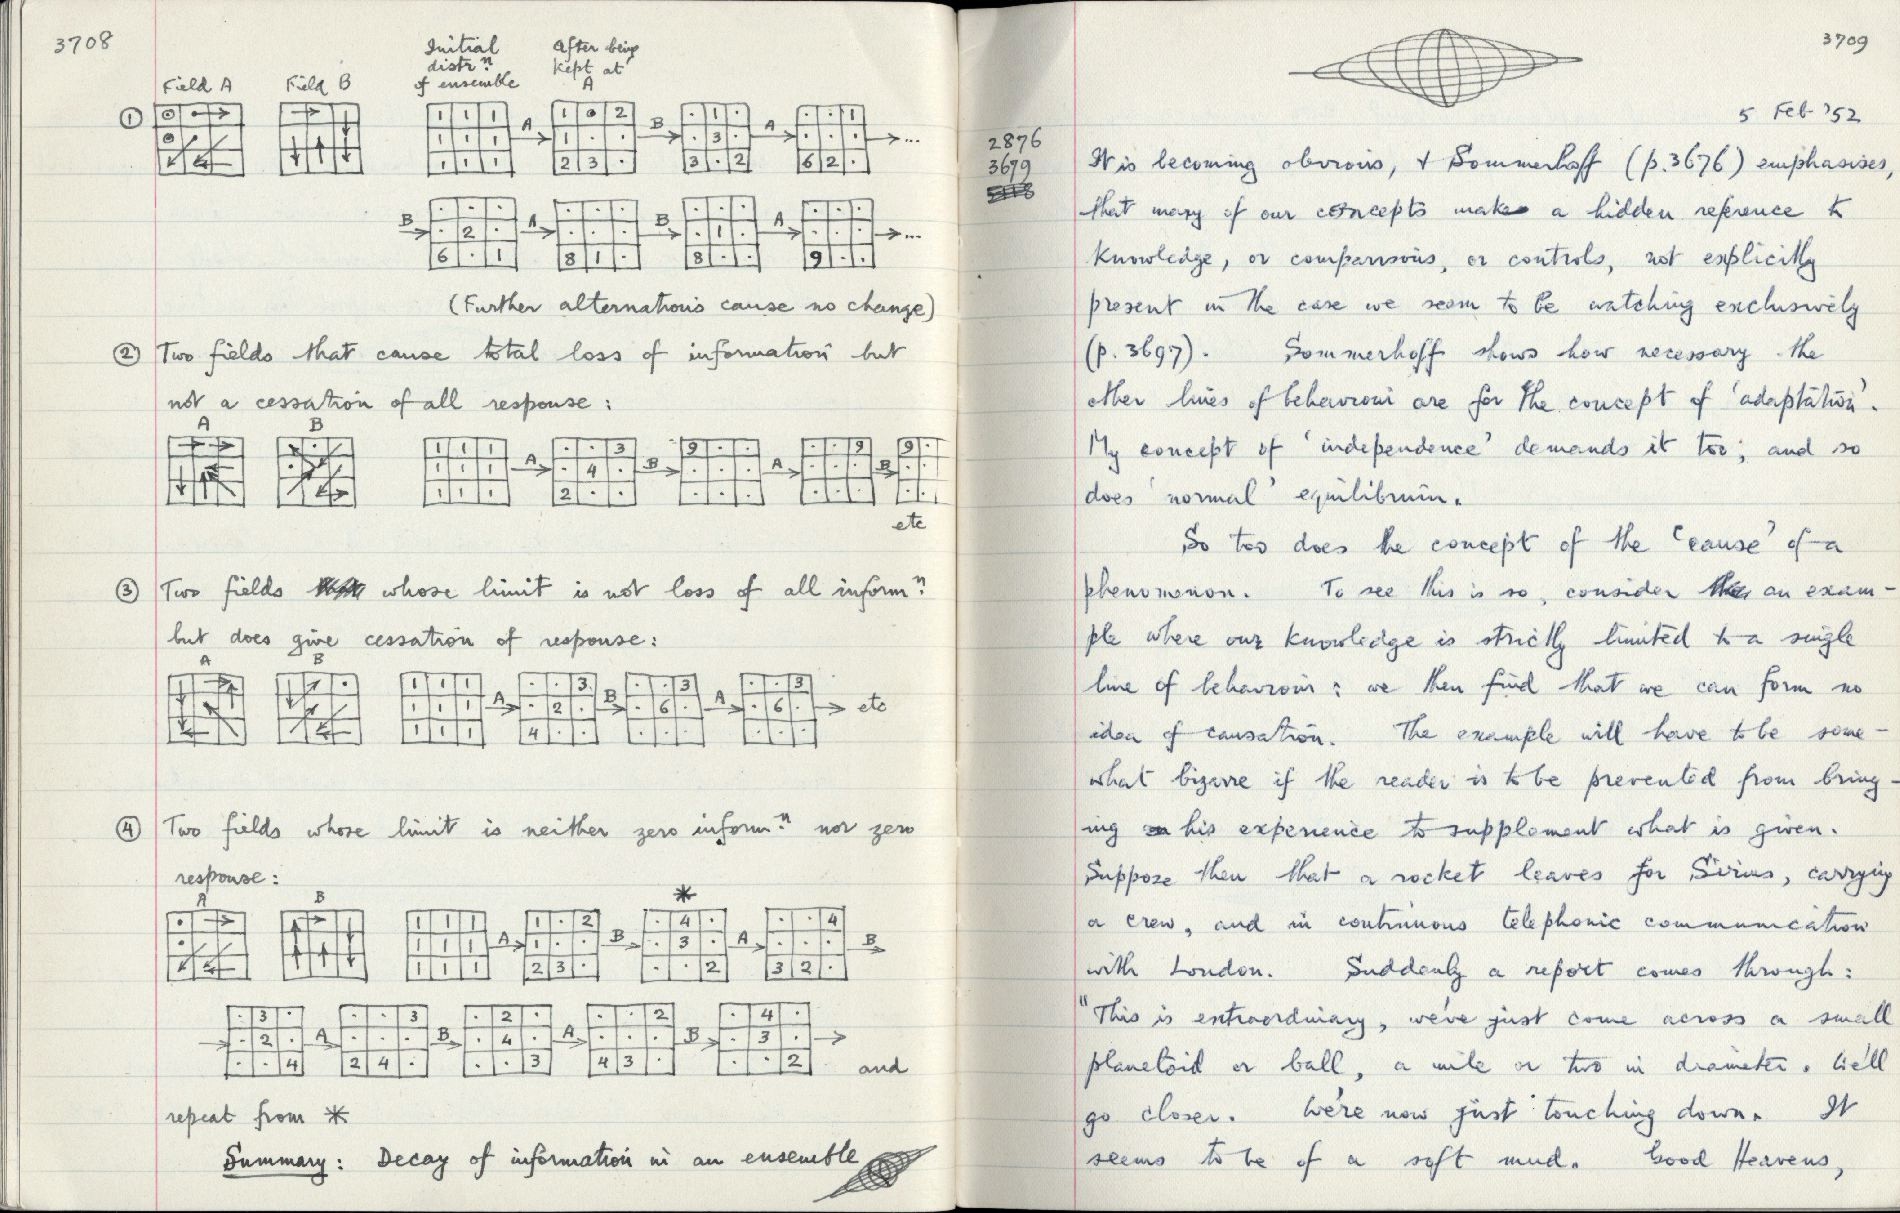 3708
Initial distrⁿ of ensemble
After being kept at A
Field A Field B
①
1 1 1 A 1 0 2 B . 1 . A . . 1
1 1 1 1 . . . 3 . . . . ...
1 1 1 2 3 . 3 . 2 6 2 .
B . . . A . . . B . . . A . . .
. 2 . . . . . 1 . . . . ...
6 . 1 8 1 . 8 . . 9 . .
(Further alternations cause no change)
② Two fields that cause total loss of information but
not a cessation of all response:
A B
1 1 1 A . . 3 B 9 . . A . . 9 B 9 .
1 1 1 . 4 . . . . . . . . .
1 1 1 2 . . . . . . . . . .
etc
③ Two fields whose limit is not loss of all informⁿ
but does give cessation of response:
A B
1 1 1 A . . 3 B . . 3 A . . 3
1 1 1 . 2 . . 6 . . 6 . etc
1 1 1 4 . . . . . . . .
④ Two fields whose limit is neither zero informⁿ nor zero
response:
A B *
1 1 1 A 1 . 2 B . 4 . A . . 4 B
1 1 1 1 . . . 3 . . . .
1 1 1 2 3 . . . 2 3 2 .
. 3 . A . . 3 B . 2 . A . . 2 B . 4 .
. 2 . . . . . 4 . . . . . 3 .
. . 4 2 4 . . . 3 4 3 . . . 2
and
repeat from *
Summary: Decay of information in an ensemble
3709
5 Feb '52
2876
3679
It is becoming obvious, & Sommerhoff (p.3676) emphasises,
that many of our concepts make a hidden reference to
knowledge, or comparisons, or controls, not explicitly
present in the case we seem to be watching exclusively
(p.3697). Sommerhoff shows how necessary the
other lines of behaviour are for the concept of 'adaptation'.
My concept of 'independence' demands it too; and so
does 'normal' equilibrium.
So too does the concept of the 'cause' of a
phenomenon. To see this is so, consider an exam-
ple where our knowledge is strictly limited to a single
line of behaviour: we then find that we can form no
idea of causation. The example will have to be some-
what bizarre if the reader is to be prevented from bring-
ing his experience to supplement what is given.
Suppose then that a rocket leaves for Sirius, carrying
a crew, and in continuous telephonic communication
with London. Suddenly a report comes through:
"This is extraordinary, we've just come across a small
planetoid or ball, a mile or two in diameter. We'll
go closer. We're now just touching down. It
seems to be of a soft mud. Good Heavens,